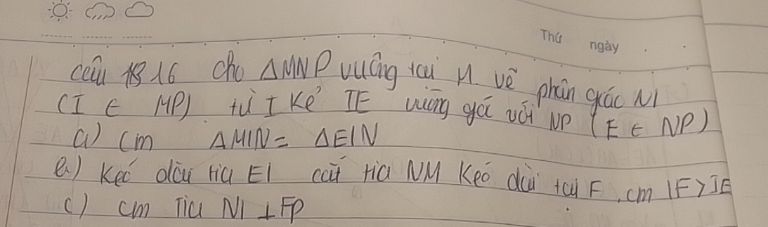 Thứ ngày
câu 16 cho ΔMNP vuông tại M vẽ phân giác NI
(I ∈ MP) từ I Kẻ IE vuông góc với NP (E ∈ NP)
a) Cm ΔMIN = ΔEIN
b) Kéo dài tia EI cắt tia NM Kéo dài tại F. cm IF > IE
c) cm Tia NI ⊥ FP